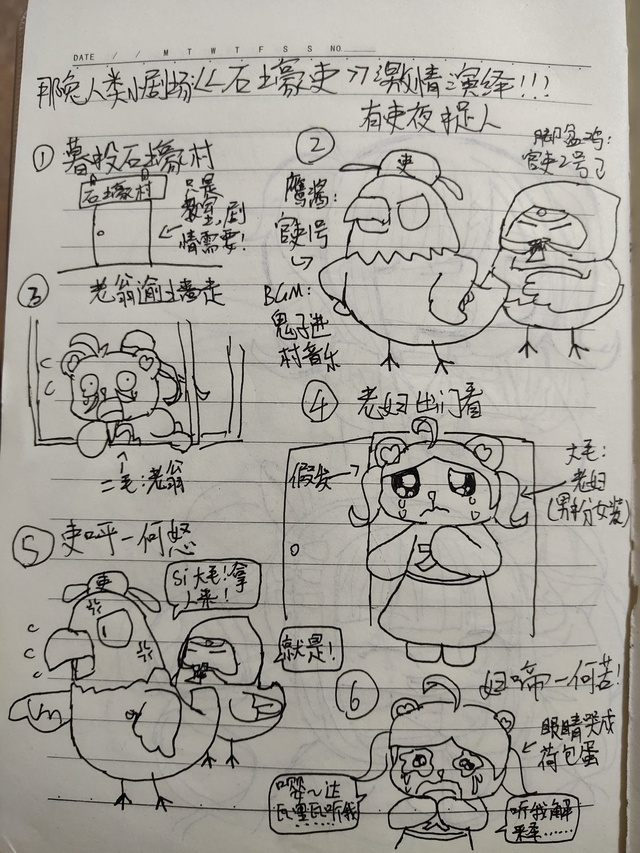 DATE / / M T W T F S S NO.
那兔人类小剧场《石壕吏》激情演绎!!!
有吏夜捉人
① 暮投石壕村
石壕村
只是
教室,剧
情需要!
②
吏
鹰酱:
官吏1号
脚盆鸡:
官吏2号
BGM:
鬼子进
村音乐
③ 老翁逾墙走
二毛:老翁
④ 老妇出门看
假发
大毛:
老妇
(男扮女装)
⑤ 吏呼一何怒
吏
Si大毛!拿
来!
就是!
⑥ 妇啼一何苦!
眼睛哭成
荷包蛋
嘤~达
瓦里瓦听我
听我解
释……